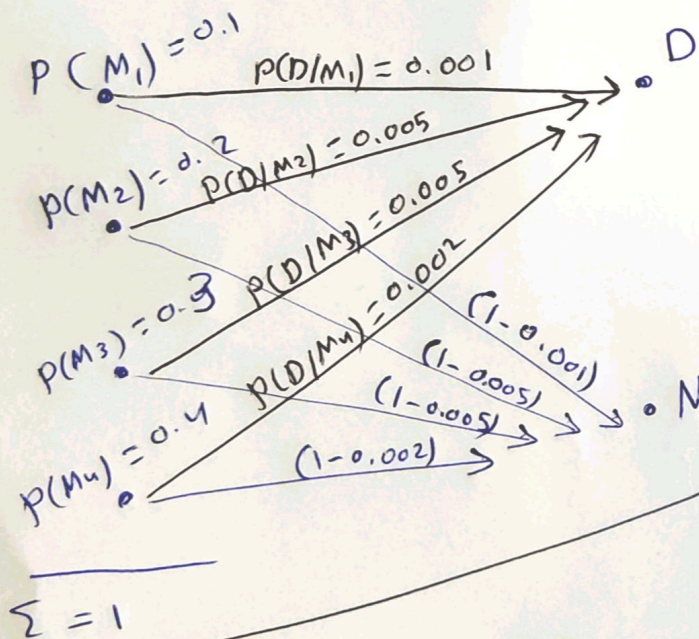 P(M₁) = 0.1
P(D/M₁) = 0.001
D
P(M2) = 0.2
P(D/M2) = 0.005
P(M3) = 0.3
P(D/M3) = 0.005
P(M4) = 0.4
P(D/M4) = 0.002
(1-0.001)
(1-0.005)
(1-0.005)
(1-0.002)
N
Σ = 1